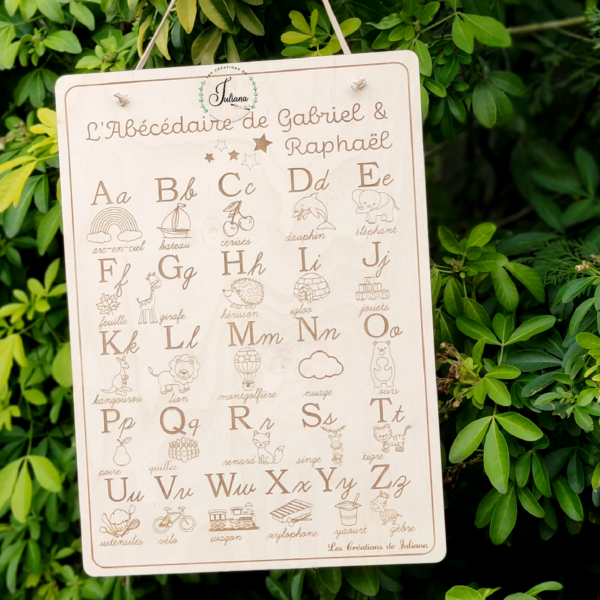 LES CRÉATIONS DE
Juliana
L'Abécédaire de Gabriel &
Raphaël
Aa Bb Cc Dd Ee
arc-en-ciel bateau cerises dauphin éléphant
Ff Gg Hh Ii Jj
feuille girafe hérisson igloo jouets
Kk Ll Mm Nn Oo
kangourou lion montgolfière nuage ours
Pp Qq Rr Ss Tt
poire quilles renard singe tigre
Uu Vv Ww Xx Yy Zz
ustensiles vélo wagon xylophone yaourt zèbre
Les Créations de Juliana